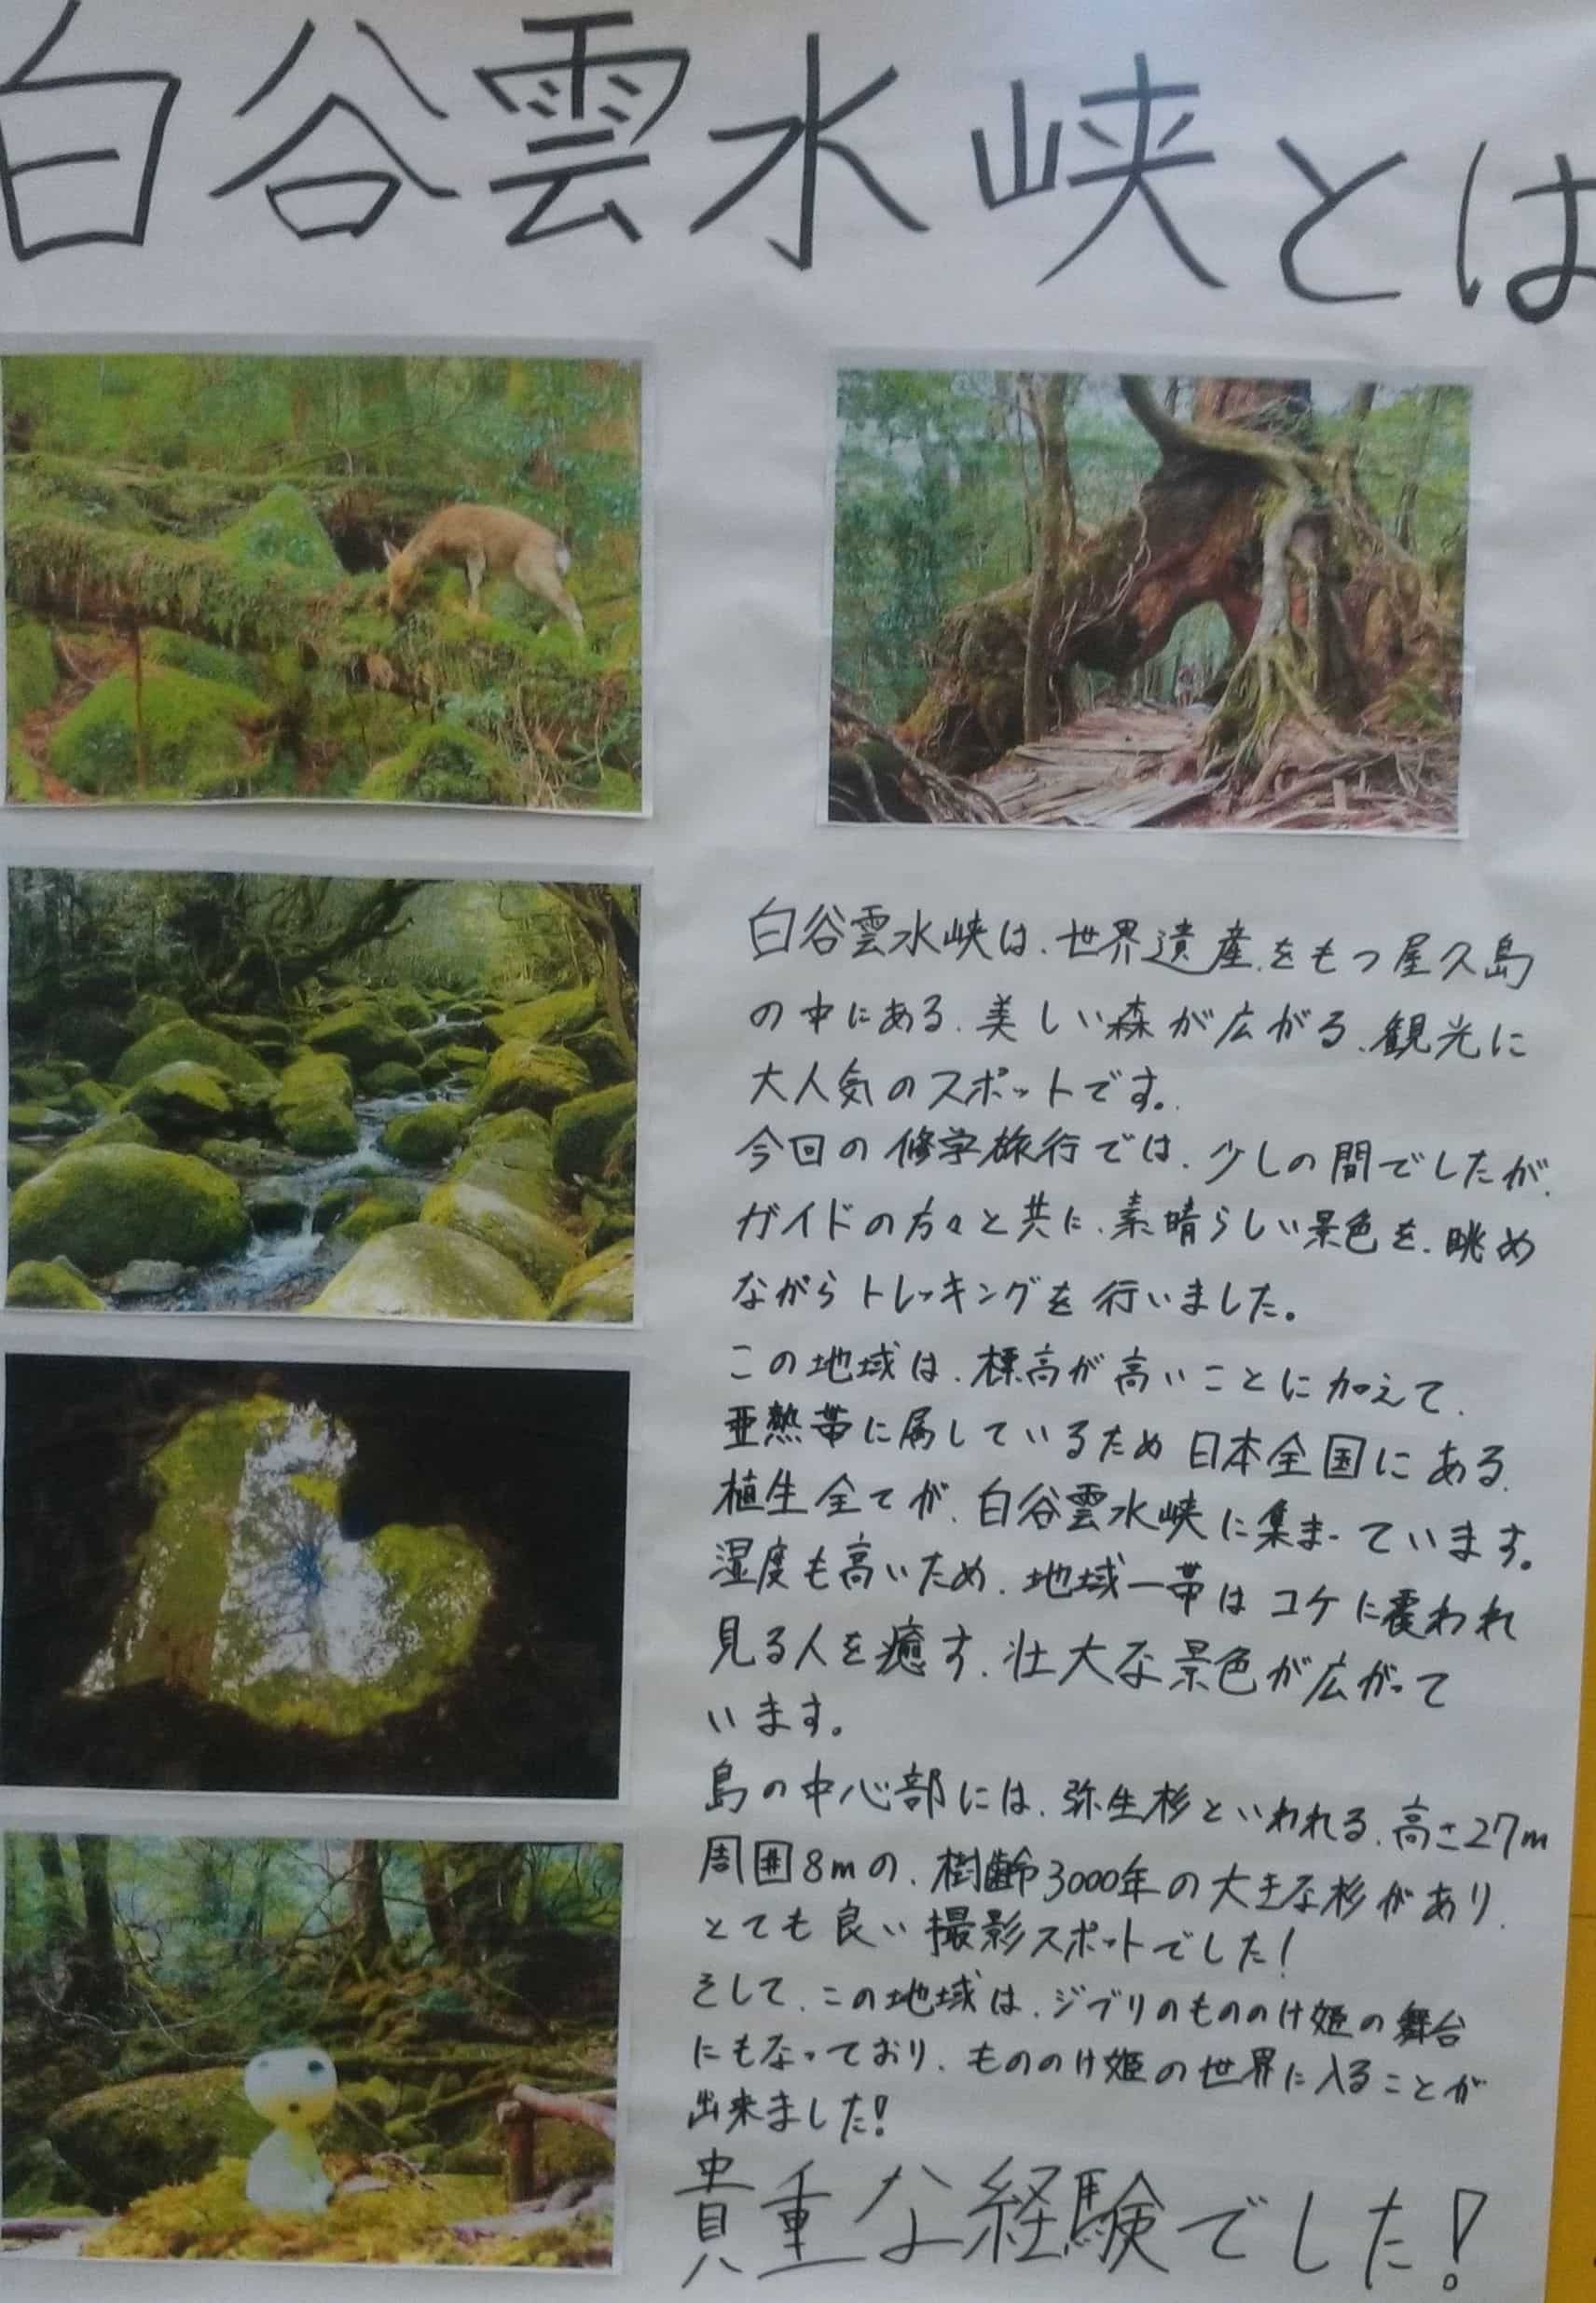 白谷雲水峡とは
白谷雲水峡は、世界遺産をもつ屋久島
の中にある、美しい森が広がる、観光に
大人気のスポットです。
今回の修学旅行では、少しの間でしたが、
ガイドの方々と共に、素晴らしい景色を、眺め
ながらトレッキングを行いました。
この地域は、標高が高いことに加えて、
亜熱帯に属しているため日本全国にある、
植生全てが、白谷雲水峡に集まっています。
湿度も高いため、地域一帯はコケに覆われ
見る人を癒す、壮大な景色が広がって
います。
島の中心部には、弥生杉といわれる、高さ27m
周囲8mの、樹齢3000年の大きな杉があり、
とても良い撮影スポットでした!
そして、この地域は、ジブリのもののけ姫の舞台
にもなっており、もののけ姫の世界に入ることが
出来ました!
貴重な経験でした!